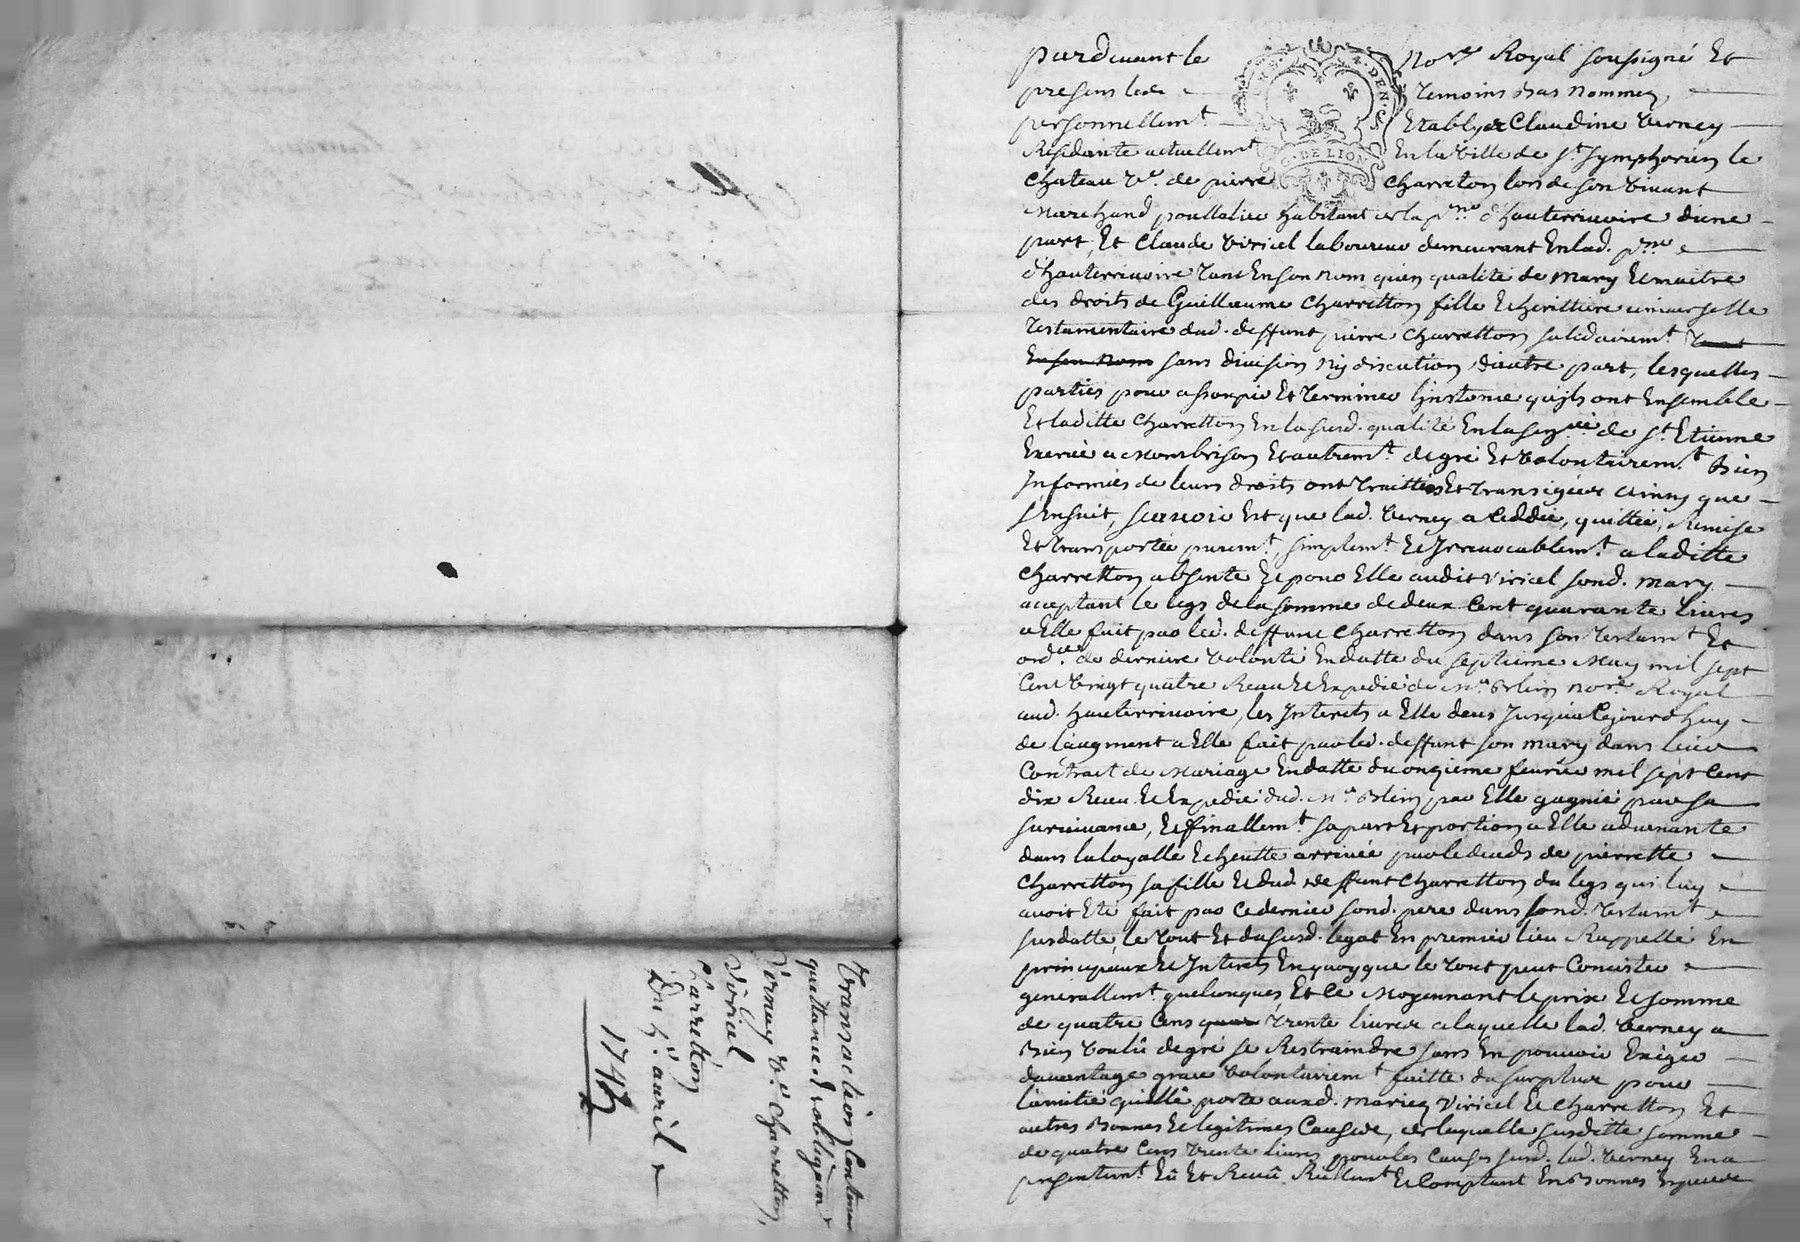 Transaction Contenant
quittance et obligaõn
Verney v.e Charretton,
Viricel
Carretton
Du 4.e avril
1742
pardevant le No.re Royal soussigné Et
presens lesd. temoins bas nommez,
personnellem.t Establye Claudine Verney
Residante actuellem.t En la Ville de S.t Symphorien le
Chateau V.e de pierre Charreton lors de son vivant
Marchand poullalier habitant de la p.sse d'hauterrivoire d'une
part, Et Claude Viricel laboureur demeurant En lad. p.sse
d'hauterrivoire tant En son nom qu'en qualité de Mary Et maitre
des droits de Guillaume Charretton fille Et heritiere universelle
testamentaire dud. deffunt pierre Charretton solidairem.t tant
En son nom sans division ny discution d'autre part, lesquelles
parties pour assoupir Et terminer l'instance qu'ils ont Ensemble
Et laditte Charretton En la susd. qualité En la de S.t Etienne
a Montbrison Et autrem.t de gré Et volontairem.t bien
Informées de leurs droits ont traittés Et transigées ainsy que
s'Ensuit, scavoir Est que lad. Verney a Ceddée, quittée, Remise
Et transportée purem.t simplem.t Et Irrevocablem.t a laditte
Charretton absente Et pour Elle audit Viricel sond. mary
acceptant le legs de la somme de deux Cent quarante livres
a Elle fait par led. deffunt Charretton dans son testam.t Et
ord.ce de derniere volonté En datte du septieme May mil sept
Cent vingt quatre Receu Et Expedié de M.e No.re Royal
aud. hauterrivoire, les Interets a Elle deus Jusqu'a Cejourd'huy
de l'augment a Elle fait par led. deffunt son mary dans leur
Contract de Mariage En datte du onzieme fevrier mil sept Cent
dix Receu Et Expedié dud. M.e par Elle gagnié par sa
survivance, Et finallem.t sa part Et portion a Elle advenante
dans la loyalle Echeutte arrivée par le deceds de pierrette
Charretton sa fille Et dud. deffunt Charretton du legs qui luy
avoit Eté fait par Ce dernier sond. pere dans sond. testam.t
susdatté, le tout Et du susd. legat En premier lieu Rappellé En
principaux Et Interets En quoy que le tout peut Consister
generallem.t quelconques Et Ce Moyennant le prix Et somme
de quatre Cens quar trente livres a laquelle lad. Verney a
bien voulû de gré se Restraindre sans En pouvoir Exiger
davantage grace volontairem.t faitte du surplus pour
l'amitié qu'elle porte auxd. mariez Viricel Et Charretton Et
autres bonnes Et legitimes Causes, de laquelle susditte somme
de quatre Cens trente livres pour les Causes susd. lad. Verney En a
presentem.t Eû Et Receû Réellem.t Et Comptant En bonnes Especes